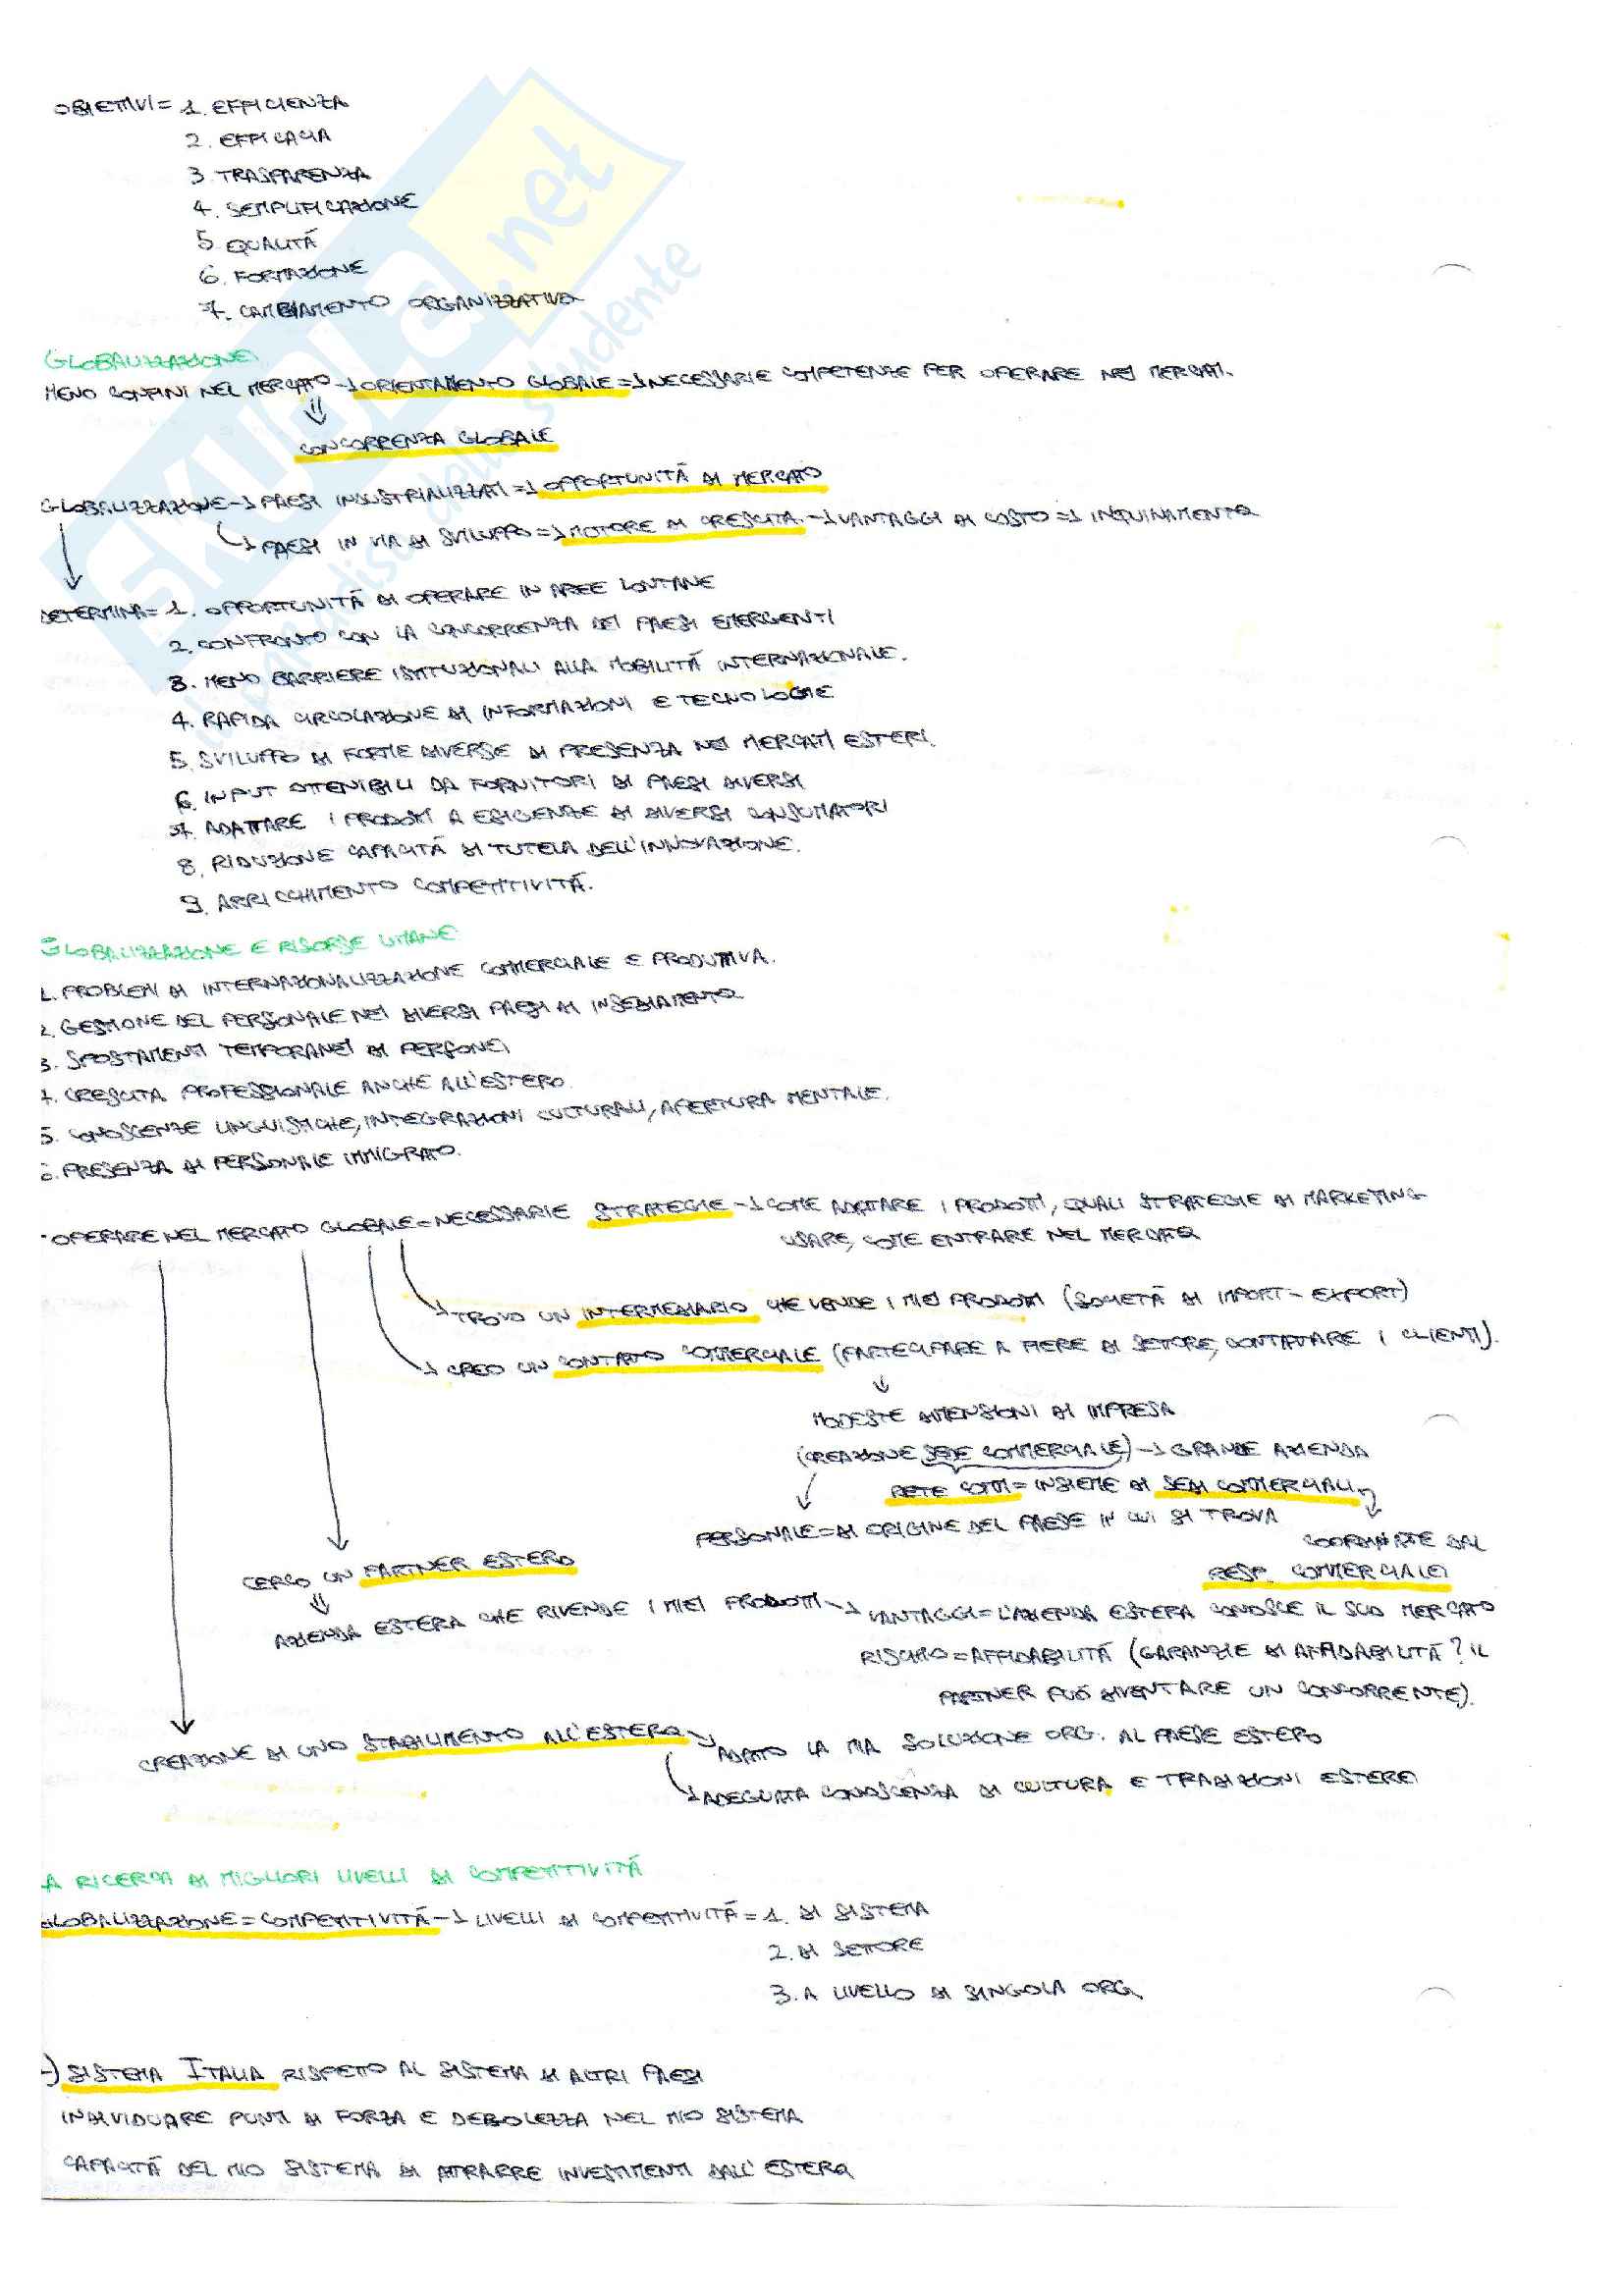 OBIETTIVI = 1. EFFICIENZA
2. EFFICACIA
3. TRASPARENZA
4. SEMPLIFICAZIONE
5. QUALITÁ
6. FORMAZIONE
7. CAMBIAMENTO ORGANIZZATIVO
GLOBALIZZAZIONE
MENO CONFINI NEL MERCATO → ORIENTAMENTO GLOBALE ⇒ NECESSARIE COMPETENZE PER OPERARE NEI MERCATI.
⇓
CONCORRENZA GLOBALE
GLOBALIZZAZIONE → PAESI INDUSTRIALIZZATI ⇒ OPPORTUNITÁ DI MERCATO
↳ PAESI IN VIA DI SVILUPPO ⇒ MOTORE DI CRESCITA. → VANTAGGI DI COSTO ⇒ INQUINAMENTO
DETERMINA = 1. OPPORTUNITÁ DI OPERARE IN AREE LONTANE
2. CONFRONTO CON LA CONCORRENZA DEI PAESI EMERGENTI
3. MENO BARRIERE ISTITUZIONALI ALLA MOBILITÁ INTERNAZIONALE.
4. RAPIDA CIRCOLAZIONE DI INFORMAZIONI E TECNOLOGIE
5. SVILUPPO DI FORME DIVERSE DI PRESENZA NEI MERCATI ESTERI.
6. INPUT OTTENIBILI DA FORNITORI DI PAESI DIVERSI
7. ADATTARE I PRODOTTI A ESIGENZE DI DIVERSI CONSUMATORI
8. RIDUZIONE CAPACITÁ DI TUTELA DELL'INNOVAZIONE.
9. ARRICCHIMENTO COMPETITIVITÁ.
GLOBALIZZAZIONE E RISORSE UMANE
1. PROBLEMI DI INTERNAZIONALIZZAZIONE COMMERCIALE E PRODUTTIVA.
2. GESTIONE DEL PERSONALE NEI DIVERSI PAESI DI INSEDIAMENTO
3. SPOSTAMENTI TEMPORANEI DI PERSONE
4. CRESCITA PROFESSIONALE ANCHE ALL'ESTERO
5. CONOSCENZE LINGUISTICHE, INTEGRAZIONI CULTURALI, APERTURA MENTALE.
6. PRESENZA DI PERSONALE IMMIGRATO.
- OPERARE NEL MERCATO GLOBALE = NECESSARIE STRATEGIE → COME ADATTARE I PRODOTTI, QUALI STRATEGIE DI MARKETING
USARE, COME ENTRARE NEL MERCATO
→ TROVO UN INTERMEDIARIO CHE VENDE I MIEI PRODOTTI (SOCIETÁ DI IMPORT - EXPORT)
→ CREO UN CONTATTO COMMERCIALE (PARTECIPARE A FIERE DI SETTORE, CONTATTARE I CLIENTI).
↓
MODESTE DIMENSIONI DI IMPRESA
(CREAZIONE SEDE COMMERCIALE) → GRANDE AZIENDA
RETE COMM = INSIEME DI SEDI COMMERCIALI
PERSONALE = DI ORIGINE DEL PAESE IN CUI SI TROVA
COORDINATE DAL
RESP. COMMERCIALE
CERCO UN PARTNER ESTERO
⇓
AZIENDA ESTERA CHE RIVENDE I MIEI PRODOTTI → VANTAGGI = L'AZIENDA ESTERA CONOSCE IL SUO MERCATO
RISCHIO = AFFIDABILITÁ (GARANZIE DI AFFIDABILITÁ? IL
PARTNER PUÓ DIVENTARE UN CONCORRENTE).
CREAZIONE DI UNO STABILIMENTO ALL'ESTERO → ADATTO LA MIA SOLUZIONE ORG. AL PAESE ESTERO
↳ ADEGUATA CONOSCENZA DI CULTURA E TRADIZIONI ESTERE
LA RICERCA DI MIGLIORI LIVELLI DI COMPETITIVITÁ
GLOBALIZZAZIONE = COMPETITIVITÁ → LIVELLI DI COMPETITIVITÁ = 1. DI SISTEMA
2. DI SETTORE
3. A LIVELLO DI SINGOLA ORG.
→) SISTEMA ITALIA RISPETTO AL SISTEMA DI ALTRI PAESI
INDIVIDUARE PUNTI DI FORZA E DEBOLEZZA NEL MIO SISTEMA
CAPACITÁ DEL MIO SISTEMA DI ATTRARRE INVESTIMENTI DALL'ESTERO
SKUOLA.net
il paradiso dello studente